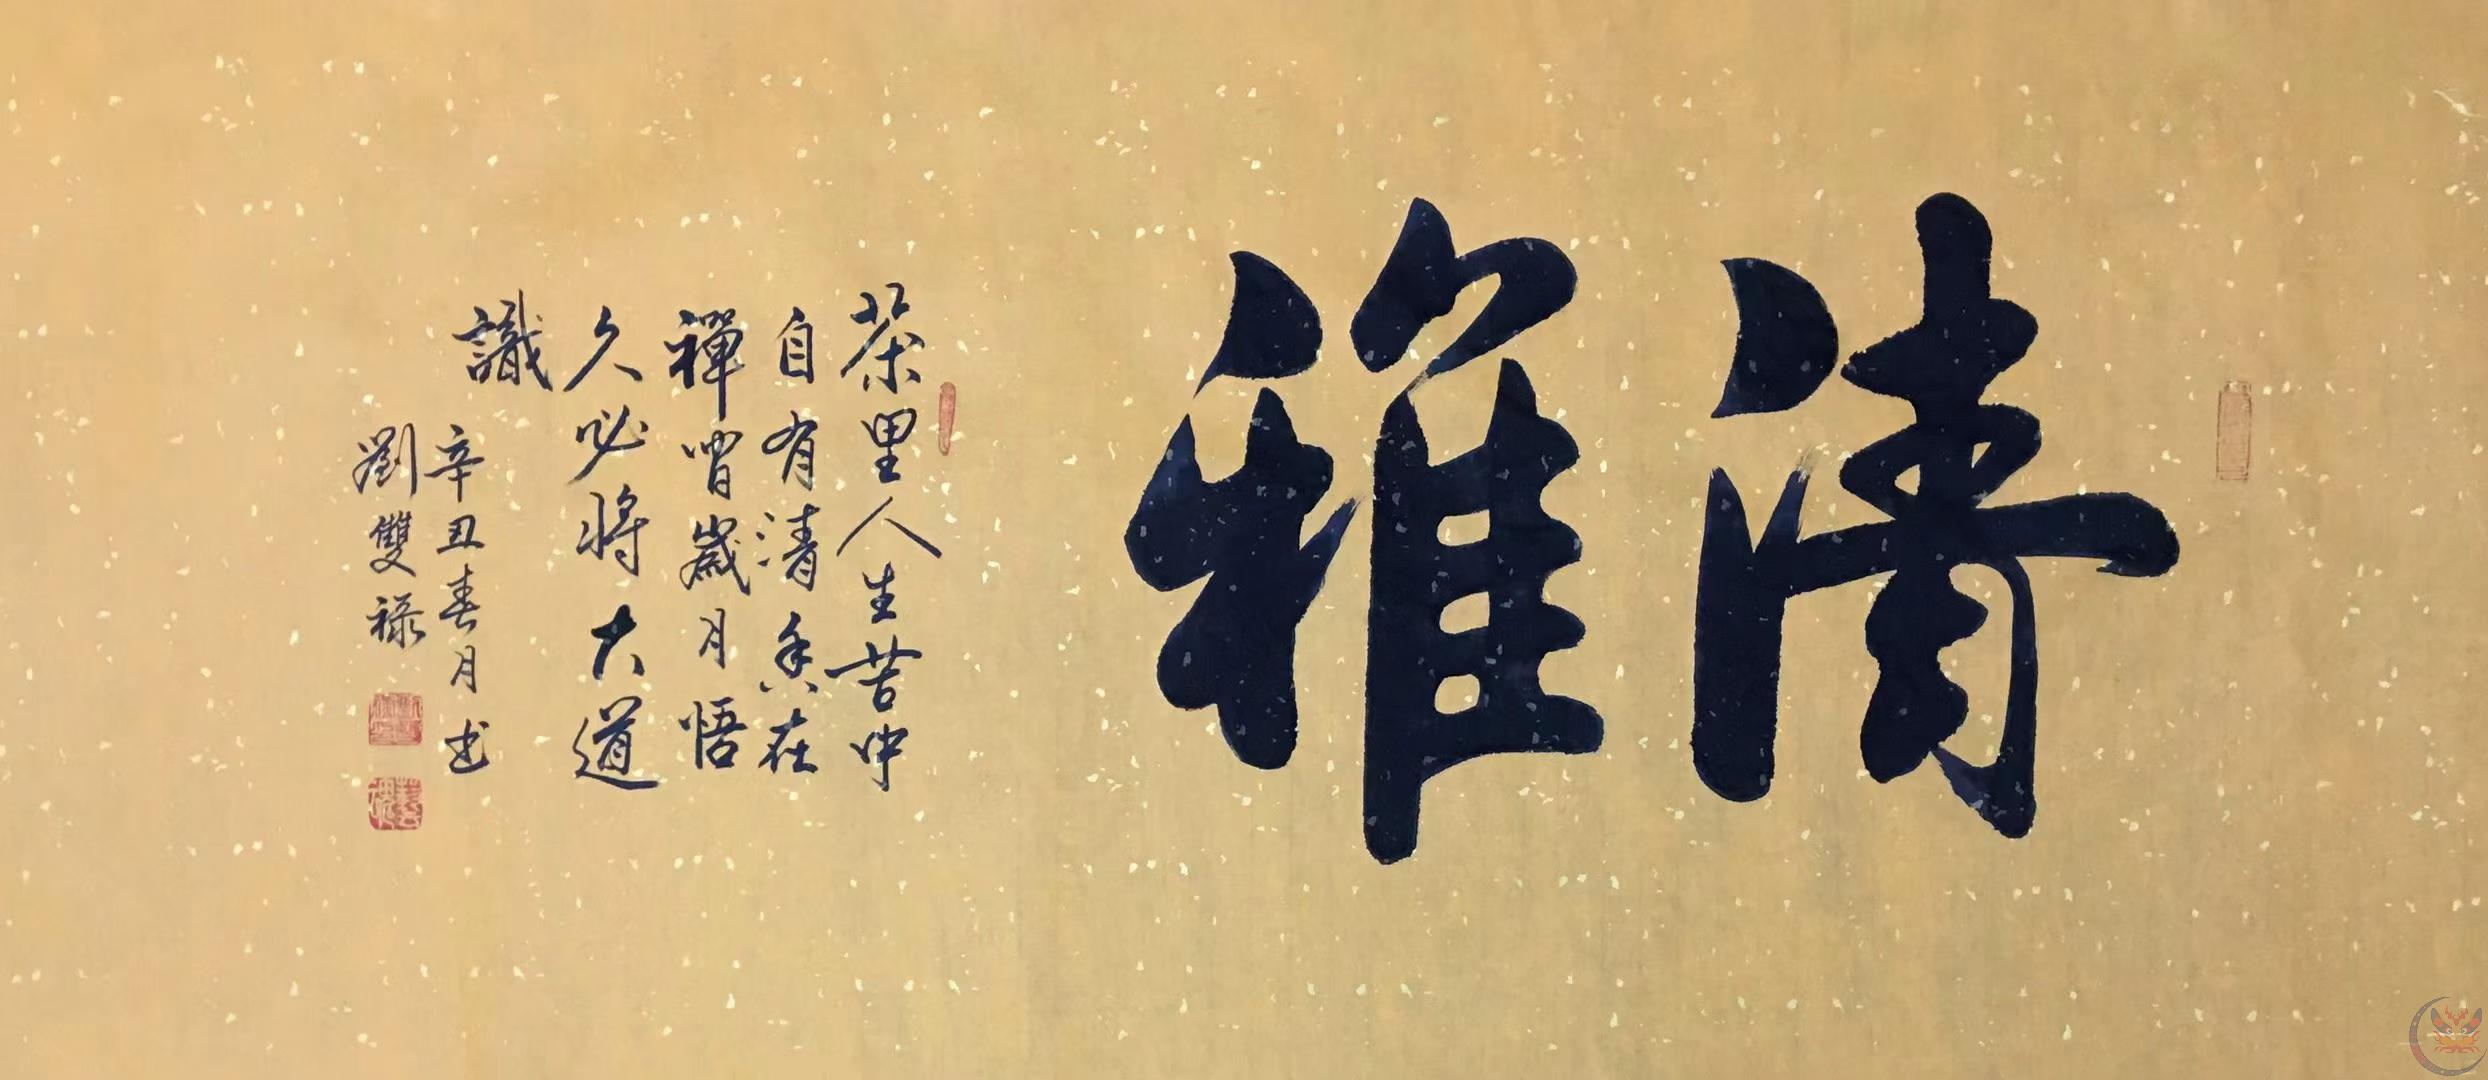 清雅
茶里人生苦中
自有清香在
禪背歲月悟
久必將大道
識
辛丑春月書
劉雙祿